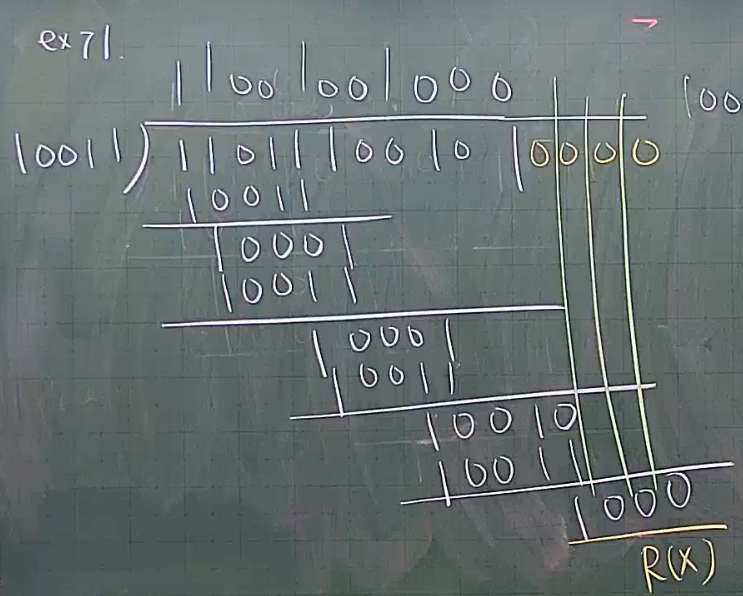 ex 71.
11001001000 100
10011)11011110010 10000
10011
10001
10011
10001
10011
10010
10011
1000
R(X)